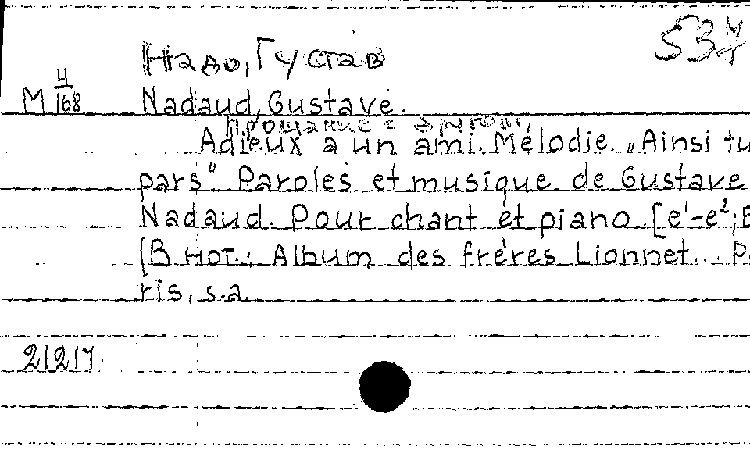 Надо, Густав
537
М 4/168
Nadaud, Gustave.
Прощание с другом
Adieux à un ami. Mélodie. „Ainsi tu
pars“. Paroles et musique de Gustave
Nadaud. Pour chant et piano [e¹-e²; E
[В нот.: Album des frères Lionnet... Pa
ris, s.a.
21217